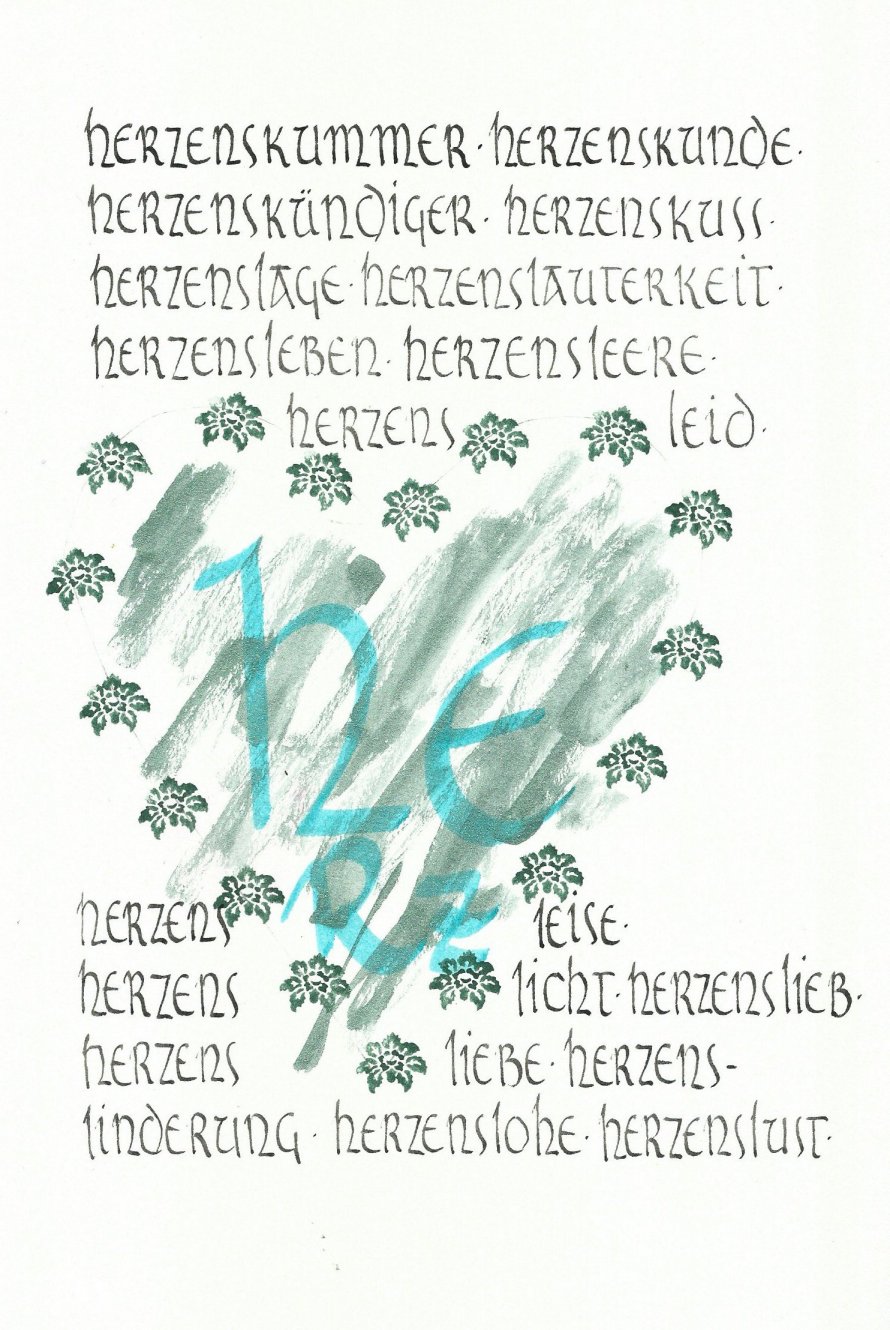 herzenskummer · herzenskunde ·
herzenskündiger · herzenskuss ·
herzenslage · herzenslauterkeit ·
herzensleben · herzensleere ·
herzens leid ·
he
rz
herzens leise ·
herzens licht · herzenslieb ·
herzens liebe · herzens-
linderung · herzenslohe · herzenslust ·